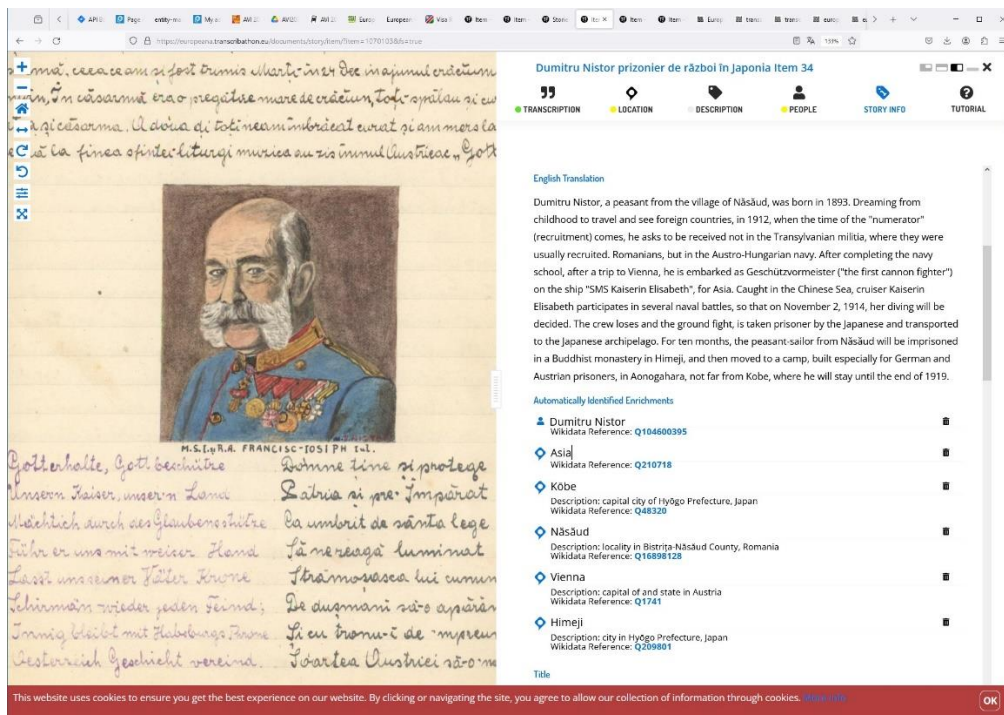 API
Page
entity-m
My e
AVI 2
AVI20
AVI 2
Euro
European
Visa
Item
Item
Stori
Item
Item
Item
Europ
trans
trans
europ
https://europeana.transcribathon.eu/documents/story/item/?item=1070103&fs=true
133%
mă, ceea ce am și fost trimis Marți în 24 Dec in ajunul crăciunu
în căsarmă era o pregătire mare de crăciun, toți spălau și cu
și căsarma. A doua di toți neam îmbrăcat curat și am mers la
că la finea sfintei liturgi murica au zis imnul Austrieac „Gott
M.S.I.și R.A. FRANCISC-IOSIPH Iul.
Gotterhalte, Gott beschütze
Unsern Kaiser, unser'n Land
Mächtich durch des Glaubensstütze
Führ er uns mit weiser Hand
Lasst uns seiner Väter Krone
Schirmăn wieder jeden Feind;
Innig bleibt mit Habsburgs Throne
Oesterreich Geschicht vereind.
Domne tine și protege
Patria și pre Împărat
Ca umbrit de sânta lege
Să nereagă luminat
Strămoșasca lui cunun
De dușmani să-o apărăn
Și cu tronu-i de -mpreun
Soartea Austriei să-o
Dumitru Nistor prizonier de război în Japonia Item 34
TRANSCRIPTION
LOCATION
DESCRIPTION
PEOPLE
STORY INFO
TUTORIAL
English Translation
Dumitru Nistor, a peasant from the village of Năsăud, was born in 1893. Dreaming from
childhood to travel and see foreign countries, in 1912, when the time of the "numerator"
(recruitment) comes, he asks to be received not in the Transylvanian militia, where they were
usually recruited. Romanians, but in the Austro-Hungarian navy. After completing the navy
school, after a trip to Vienna, he is embarked as Geschützvormeister ("the first cannon fighter")
on the ship "SMS Kaiserin Elisabeth", for Asia. Caught in the Chinese Sea, cruiser Kaiserin
Elisabeth participates in several naval battles, so that on November 2, 1914, her diving will be
decided. The crew loses and the ground fight, is taken prisoner by the Japanese and transported
to the Japanese archipelago. For ten months, the peasant-sailor from Năsăud will be imprisoned
in a Buddhist monastery in Himeji, and then moved to a camp, built especially for German and
Austrian prisoners, in Aonogahara, not far from Kobe, where he will stay until the end of 1919.
Automatically Identified Enrichments
Dumitru Nistor
Wikidata Reference: Q104600395
Asia
Wikidata Reference: Q210718
Kōbe
Description: capital city of Hyōgo Prefecture, Japan
Wikidata Reference: Q48320
Năsăud
Description: locality in Bistrița-Năsăud County, Romania
Wikidata Reference: Q16898128
Vienna
Description: capital of and state in Austria
Wikidata Reference: Q1741
Himeji
Description: city in Hyōgo Prefecture, Japan
Wikidata Reference: Q209801
Title
This website uses cookies to ensure you get the best experience on our website. By clicking or navigating the site, you agree to allow our collection of information through cookies. More info
OK